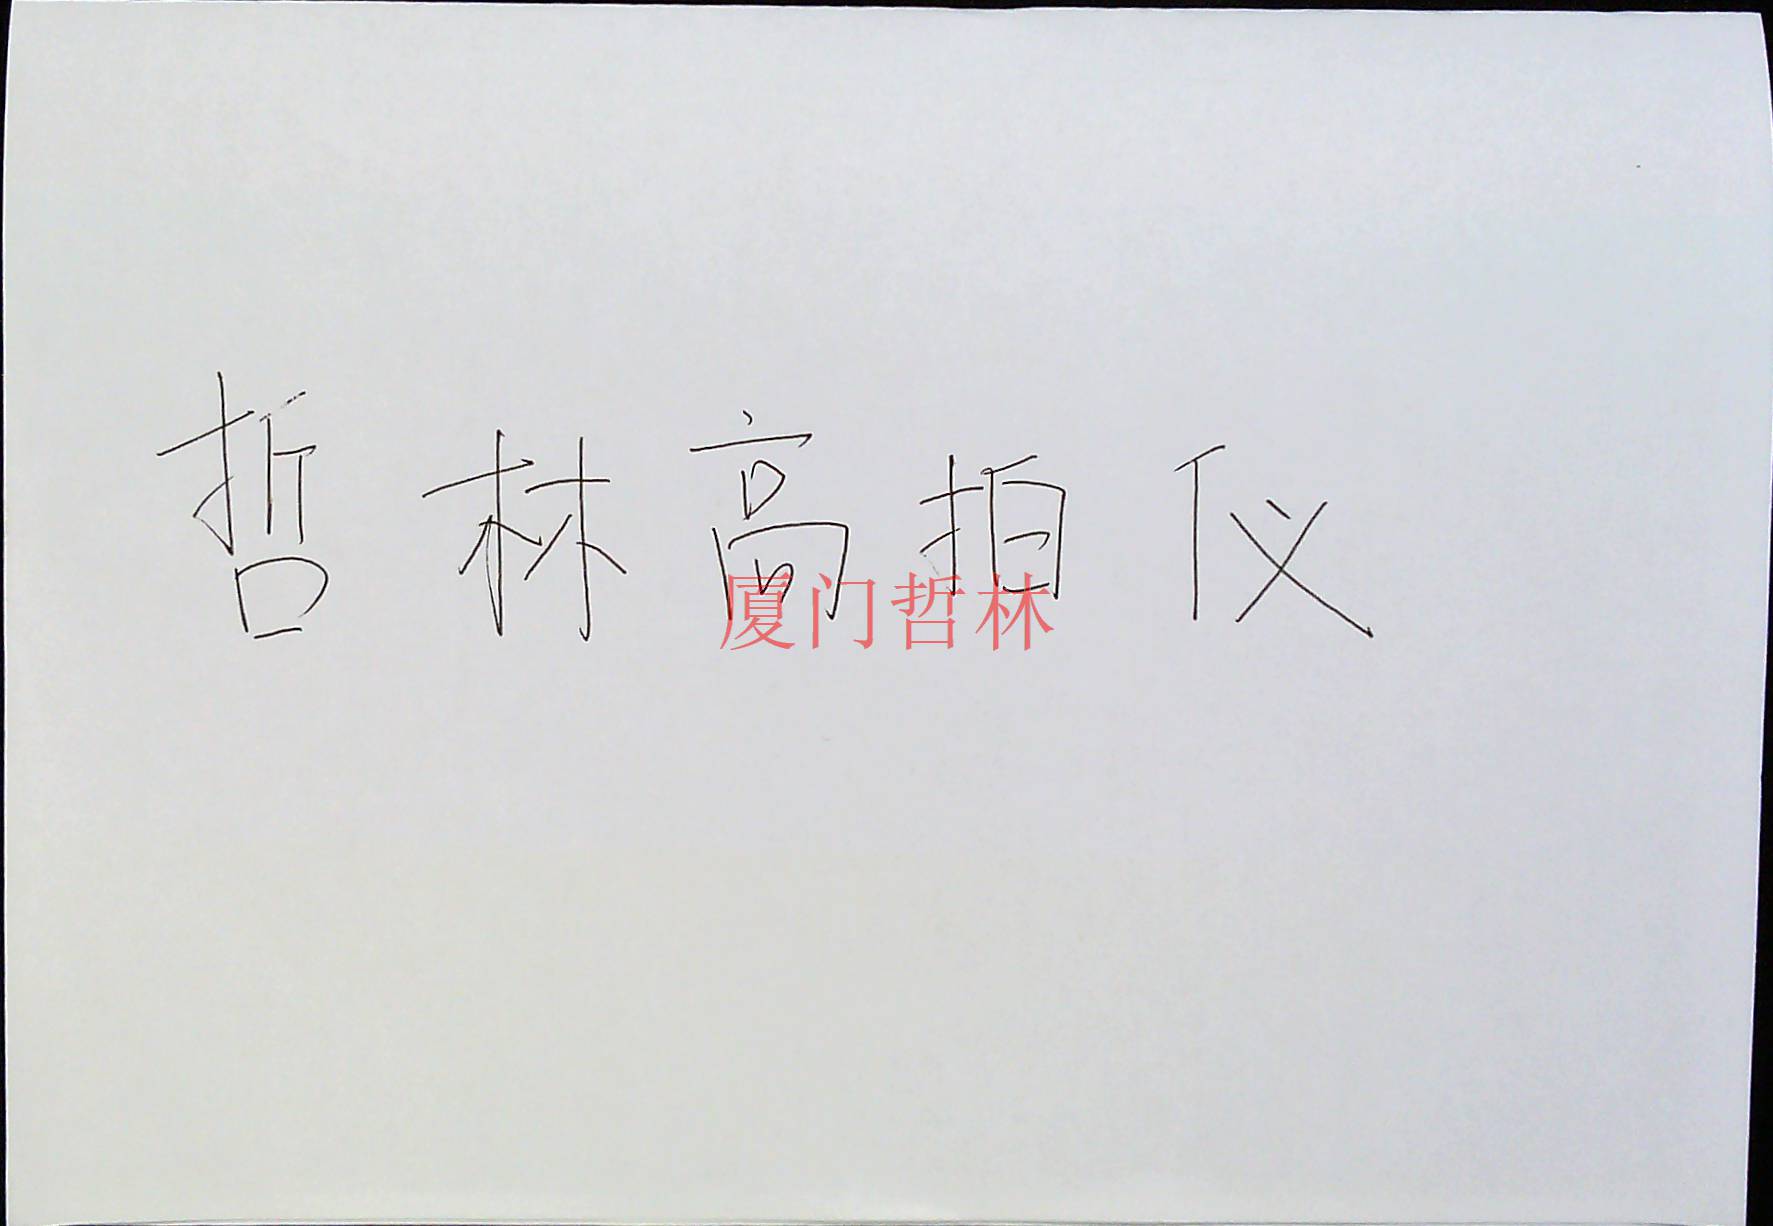 哲林高拍仪
厦门哲林